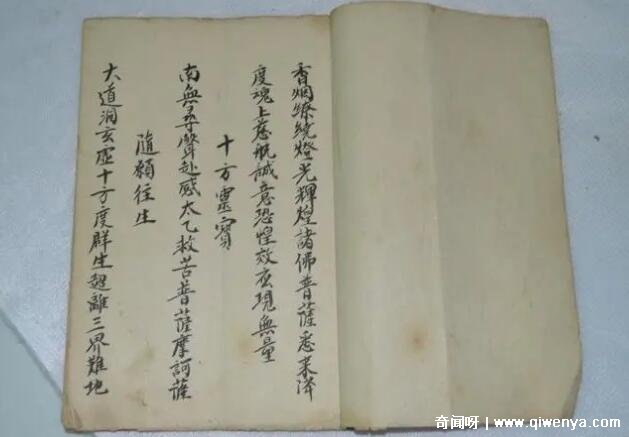 香烟缭繞燈光輝煌諸佛普薩悉来降
度魂上慈航誠意恐惶效在現無量
十方靈寳
南無尋聲赴感太乙救苦普薩摩訶薩
隨願往生
大道洞玄虚十方度群生超離三界難地
奇闻呀 | www.qiwenya.com